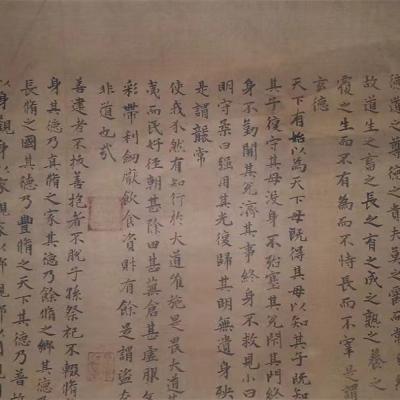 德道之尊德之貴夫莫之爵而常自
故道生之畜之長之育之成之熟之養之
覆之生而不有為而不恃長而不宰是謂
玄德
天下有始以為天下母既得其母以知其子既知
其子復守其母沒身不殆塞其兌閉其門終
身不勤開其兌濟其事終身不救見小曰
明守柔曰強用其光復歸其明無遺身殃
是謂襲常
使我介然有知行於大道唯施是畏大道
夷而民好徑朝甚除田甚蕪倉甚虛服
彩帶利劍厭飲食資財有餘是謂盜
非道也哉
善建者不拔善抱者不脫子孫祭祀不輟脩
身其德乃真脩之家其德乃餘脩之鄉其德
長脩之國其德乃豐脩之天下其德乃普故
以身觀身以家觀家以鄉觀鄉以國觀